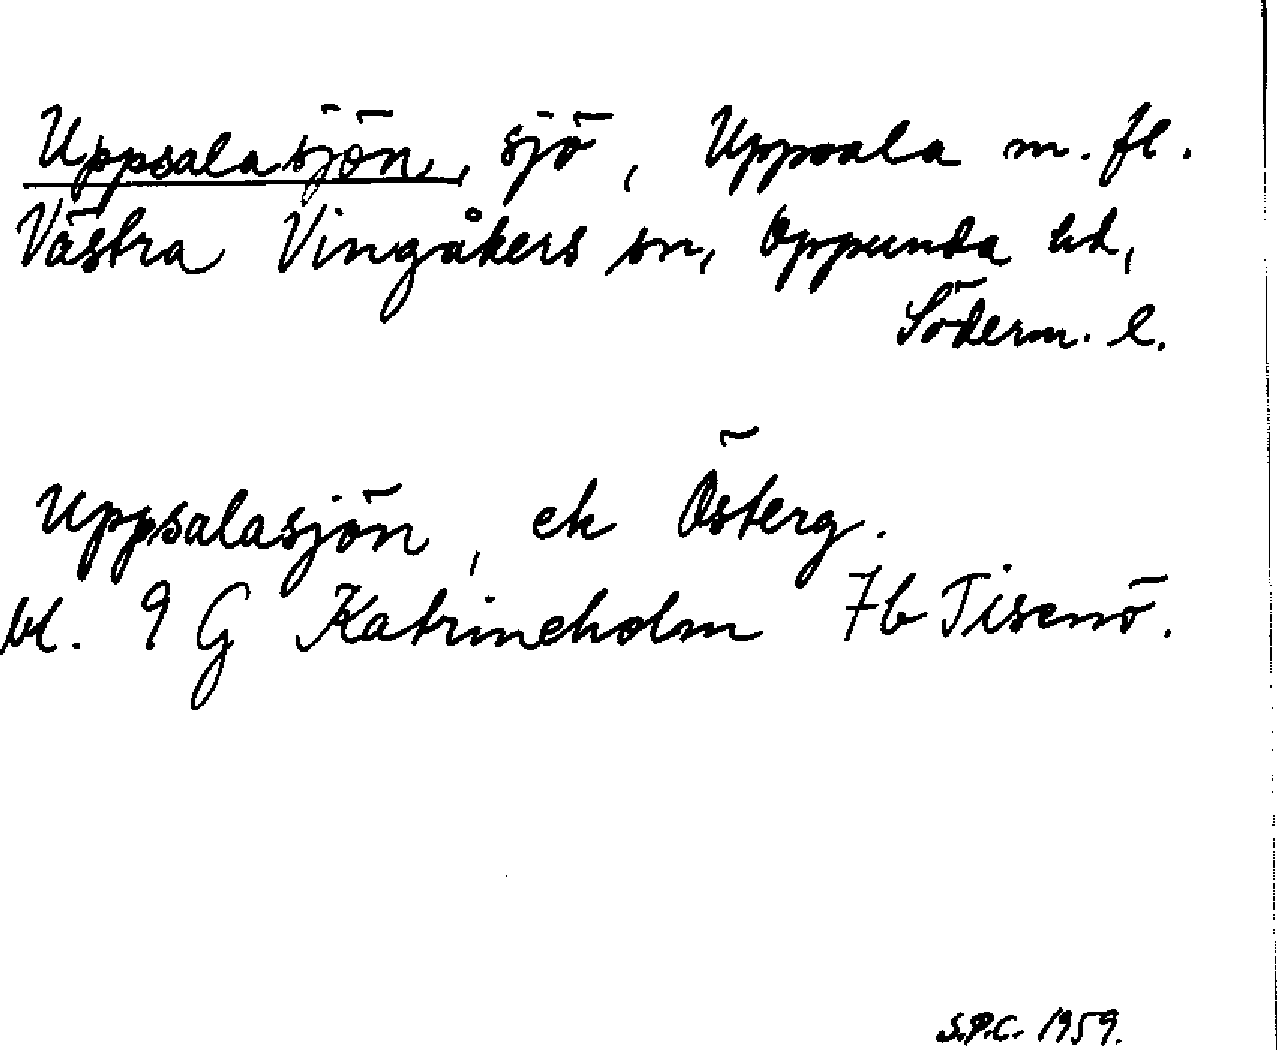 Uppsalasjön, sjö, Uppsala m. fl.
Västra Vingåkers sn, Oppunda hd,
Söderm. l.
Uppsalasjön, ek Österg.
bl. 9 G Katrineholm 7b Tisenö.
S.P.C. 1959.